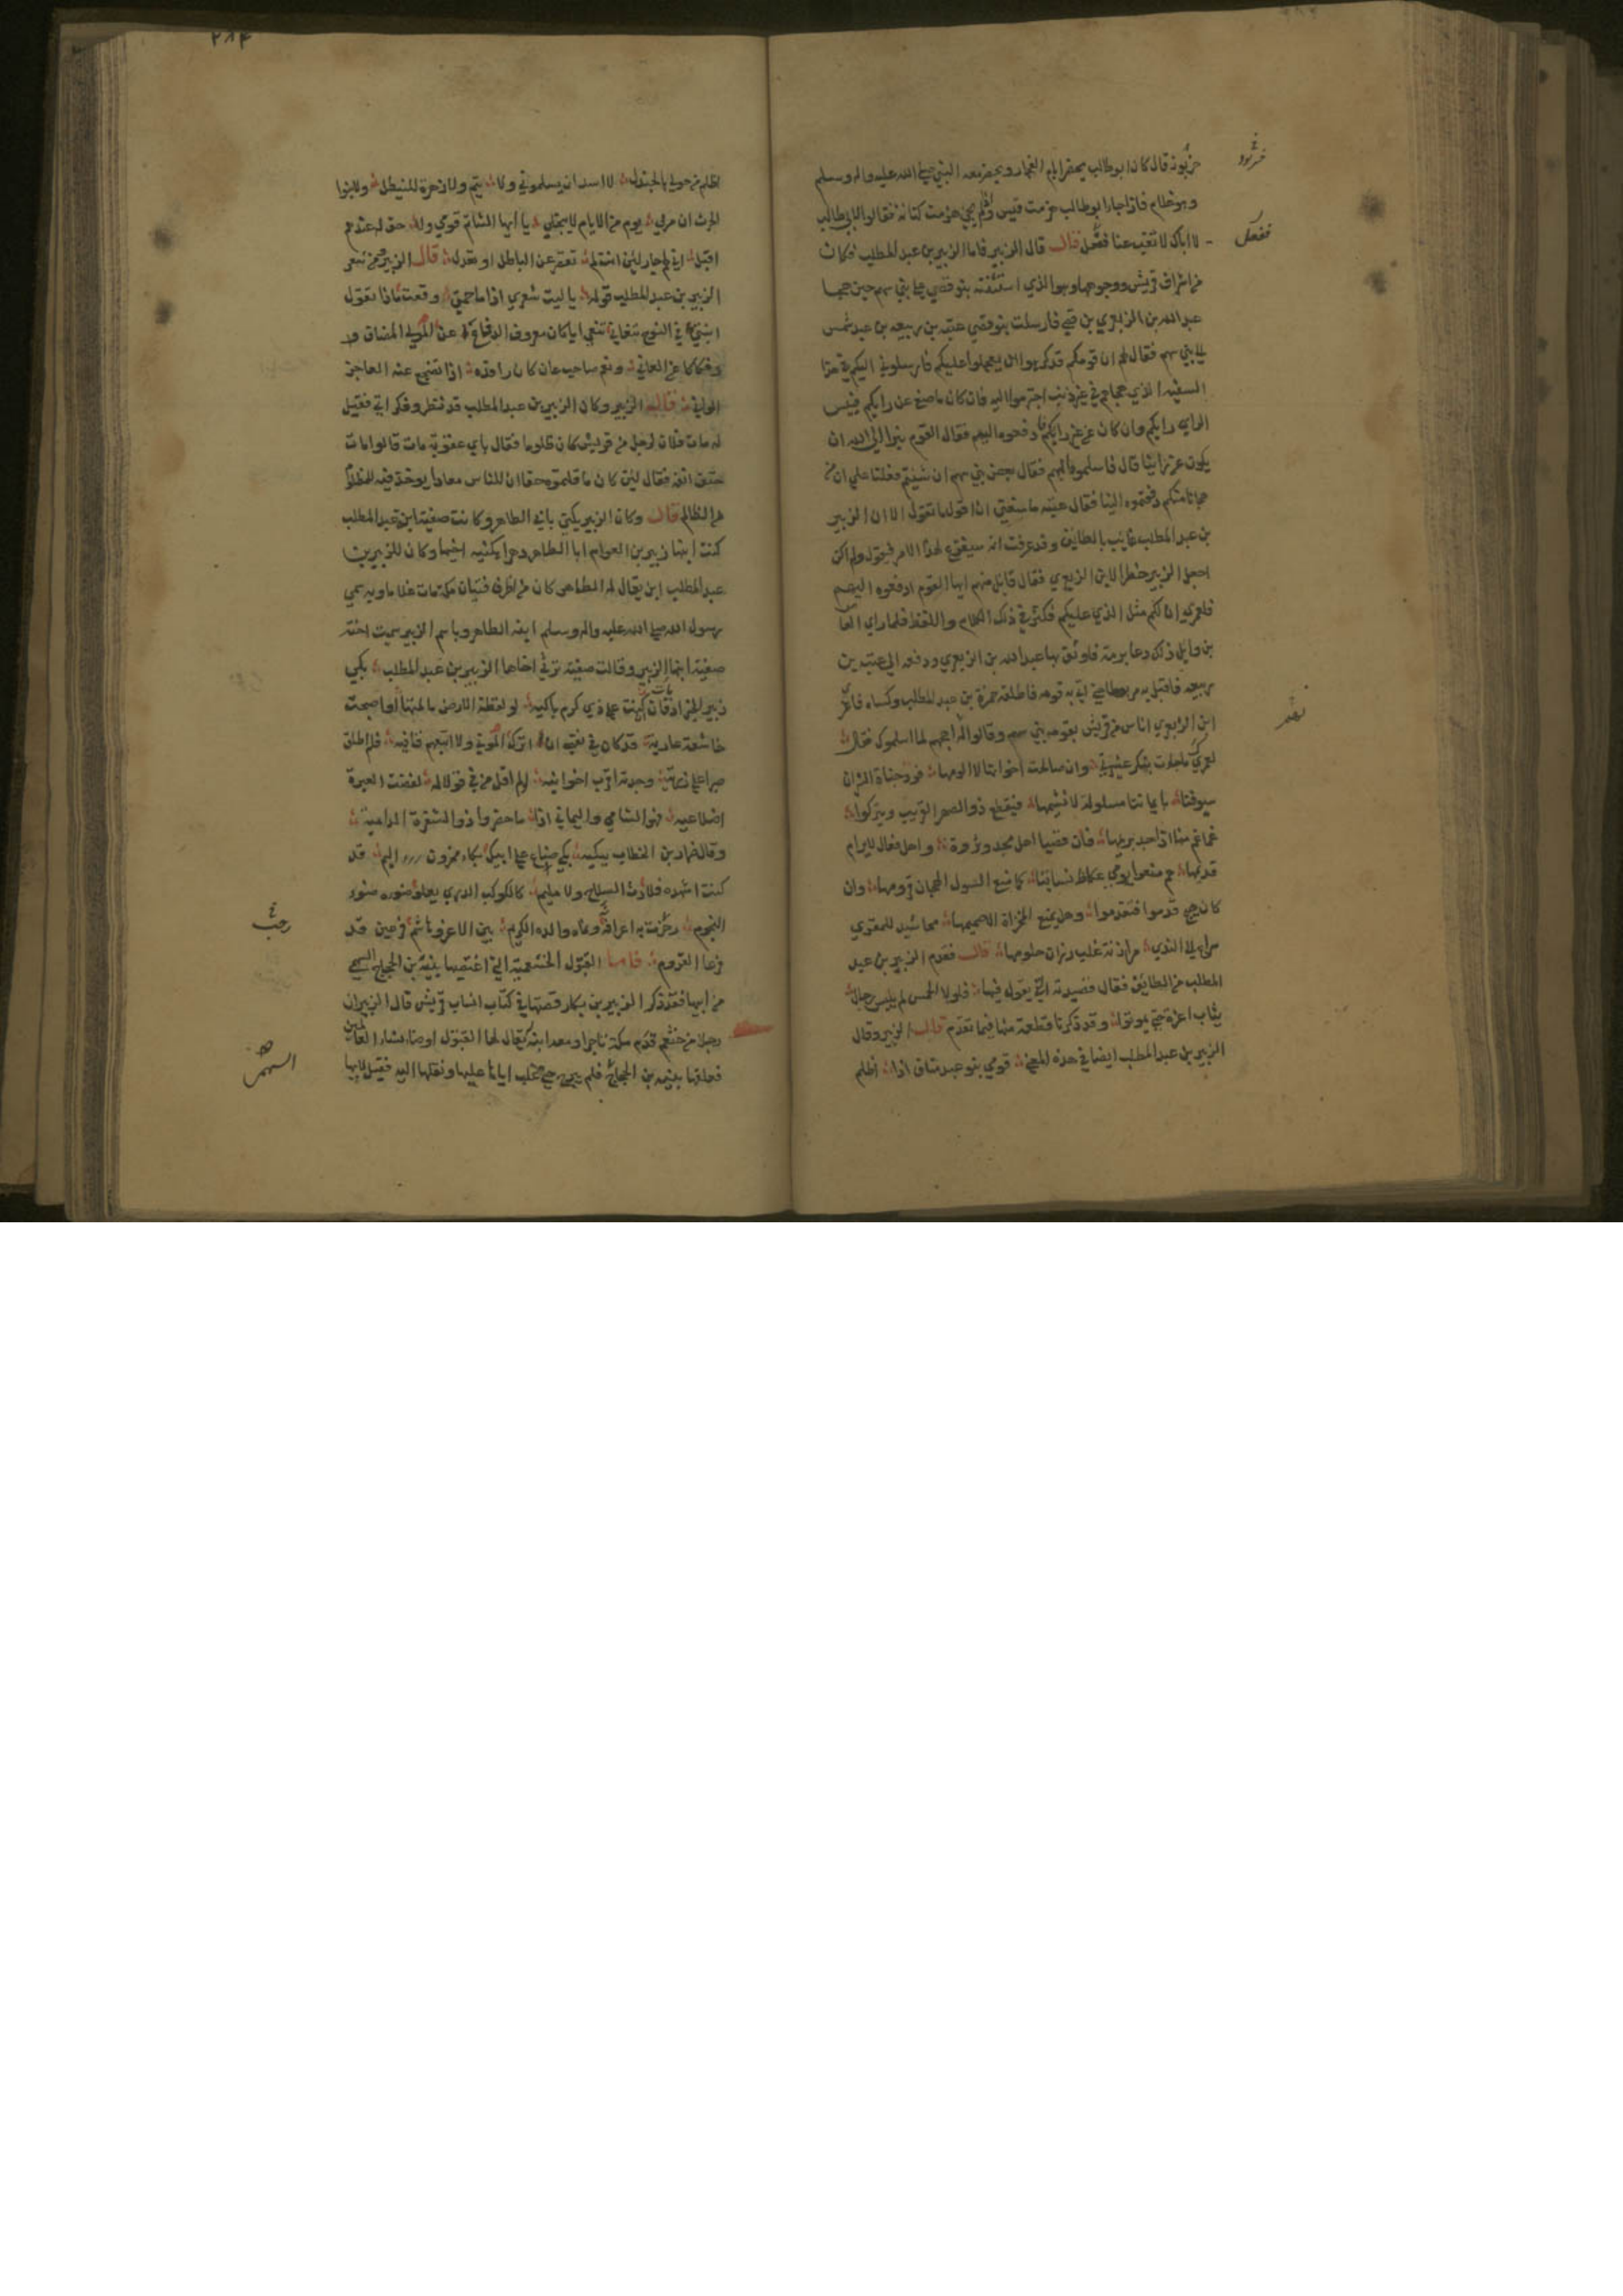 خربوذ قال كان ابو طالب يحضر ايام الفجار ويحضر معه النبي صلى الله عليه واله وسلم
وهو غلام فاذا جاء ابو طالب هزمت قيس واذا لم يجئ هزمت كنانة فقالوا لابي طالب
لا ابالك لا تغب عنا ففعل قال قال الزبير فاما الزبير بن عبد المطلب فكان
من اشراف قريش ووجوهها وهو الذي استثنته بنو قصي على بني سهم حين هجا
عبد الله بن الزبعري بن قصي فارسلت بنو قصي عتبة بن ربيعه بن عبد شمس
الي بني سهم فقال لهم ان قومكم قد كرهوا ان يعجلوا عليكم فارسلوني اليكم في هذا
السفيه الذي هجاهم في غير ذنب اجترموا اليه فان كان ما صنع عن رايكم فبئس
الراي رايكم وان كان عن غير رايكم فادفعوه اليهم فقال القوم نبرا الي الله ان
يكون عن راينا قال فاسلموه اليهم فقال بعض بني سهم ان شئتم فعلنا علي ان من
هجانا منكم دفعتموه الينا فقال عتبه ما يمنعني ان اقول ما تقول الا ان الزبير
بن عبد المطلب غايب بالطايف وقد عرفت انه سيفزع لهذا الامر فيقول ولم اكن
اجعل الزبير خطرا لابن الزبعري فقال قايل منهم ايها القوم ادفعوه اليهم
فلعمري ان لكم مثل الذي عليكم فكثر في ذلك الكلام واللغط فلما راي العاص
بن وايل ذلك دعا برمة فاوثق بها عبد الله بن الزبعري ودفعه الي عتبة بن
ربيعه فاقبل به مربوطا حتي اتي به قومه فاطلقه حمزة بن عبد المطلب وكساه فاغري
ابن الزبعري اناس من قريش بقومه بني سهم وقالوا له اهجهم لما اسلموك فقال
لعمرك ما جاءت بنكر عشيرتي وان صالحت اخوانها لا الومها فود جناة الشر ان
سيوفنا بايماننا مسلولة لا نشيمها فيقطع ذو الصهر القريب ويتركوا
غماغم منا اذ اجد بريمها فان قصيا اهل مجد وثروة واهل فعال لا يرام
قديمها هم منعوا يومي عكاظ نساينا كما منع الشول الهجان قرومها وان
كان هيج قدموا فتقدموا وهل يمنع المخزاة الا صميمها محاشيد للمقري
سراع الي الندي مرازنة غلب رزان حلومها قال فقدم الزبير بن عبد
المطلب من الطايف فقال قصيدته التي يقول فيها فلولا الحمس لم يلبس رجال
ثياب اعزة حتي يموتوا وقد ذكرنا قطعة منها فيما تقدم قال الزبير وقال
الزبير بن عبد المطلب ايضا في هذه المعني قومي بنو عبد مناف اذا اظلم
خربوذ
ففعل
نعثر
٢٨٣
اظلم من حولي بالجندل لا اسد ان يسلموني ولا تيم ولا زهرة للنيطل ولا بنوا
الحرث ان مر بي يوم من الايام لا ينجلي يا ايها الشاتم قومي ولا حق له عندهم
اقبل اني لهم جار لئن انت لم تقصر عن الباطل او تعدل قال الزبير ومن شعر
الزبير بن عبد المطلب قوله يا ليت شعري اذا ما حمتي وقعت ماذا تقول
ابنتي في النوح تنعاني تنعي ابا كان معروف الدفاع عن المولي المضاف و
وفكاكا عن العاني ونعم صاحب عان كان رافده اذا تضجع عنه العاجز
الواني قال الزبير وكان الزبير بن عبد المطلب قد نظر وفكر اتي فقيل
له مات فلان لرجل من قريش كان ظلوما فقال باي عقوبة مات قالوا مات
حتف انفه فقال لئن كان ما قلتموه حقا ان للناس معادا يوخذ فيه للمظلوم
من الظالم قال وكان الزبير يكني بابي الطاهر وكانت صفية ابنة عبد المطلب
كنت ابنها زبير بن العوام ابا الطاهر دهرا بكنية اخيها وكان للزبير بن
عبد المطلب ابن يقال له الطاهر كان من اظرف فتيان مكة مات غلاما وبه سمي
رسول الله صلى الله عليه واله وسلم ابنه الطاهر وباسم الزبير سمت اخته
صفية ابنها الزبير وقالت صفية ترثي اخاها الزبير بن عبد المطلب بكي
زبير الخير اذ مات ان كنت علي ذي كرم باكيه لو لفظته الارض ما لمتها او اصبحت
خاشعة عارية قد كان في نفسي ان اترك الموتي ولا اتبعهم قافيه فلم اطق
صبرا علي رزئه وجدته اقرب اخوانيه لو لم اقل من في قولا له لقضت العبرة
اضلاعيه فهو الشامي واليماني اذا ما حضروا ذو الشفرة الداميه
وقال ضرار بن الخطاب يبكيه بكي ضباع علي ابيك بكاء محزون اليم قد
كنت انشده فلا رث السلاح ولا سليم كالكوكب الدري يعلو ضوءه ضوء
النجوم زخرت به اعراقه ونماه والده الكريم بين الاغر وهاشم فرعين قد
فرعا القروم فاما القتول الخثعمية التي اغتصبها نبيه بن الحجاج السهمي
من ابيها فقد ذكر الزبير بن بكار قصتها في كتاب انساب قريش قال الزبير ان
رجلا من خثعم قدم مكة تاجرا ومعه ابنة يقال لها القتول اوضا نساء العالمين
فعلقها نبيه بن الحجاج فلم يبرح حتي غلب اباها عليها ونقلها اليه فقيل لابيها
رجب
السهمي